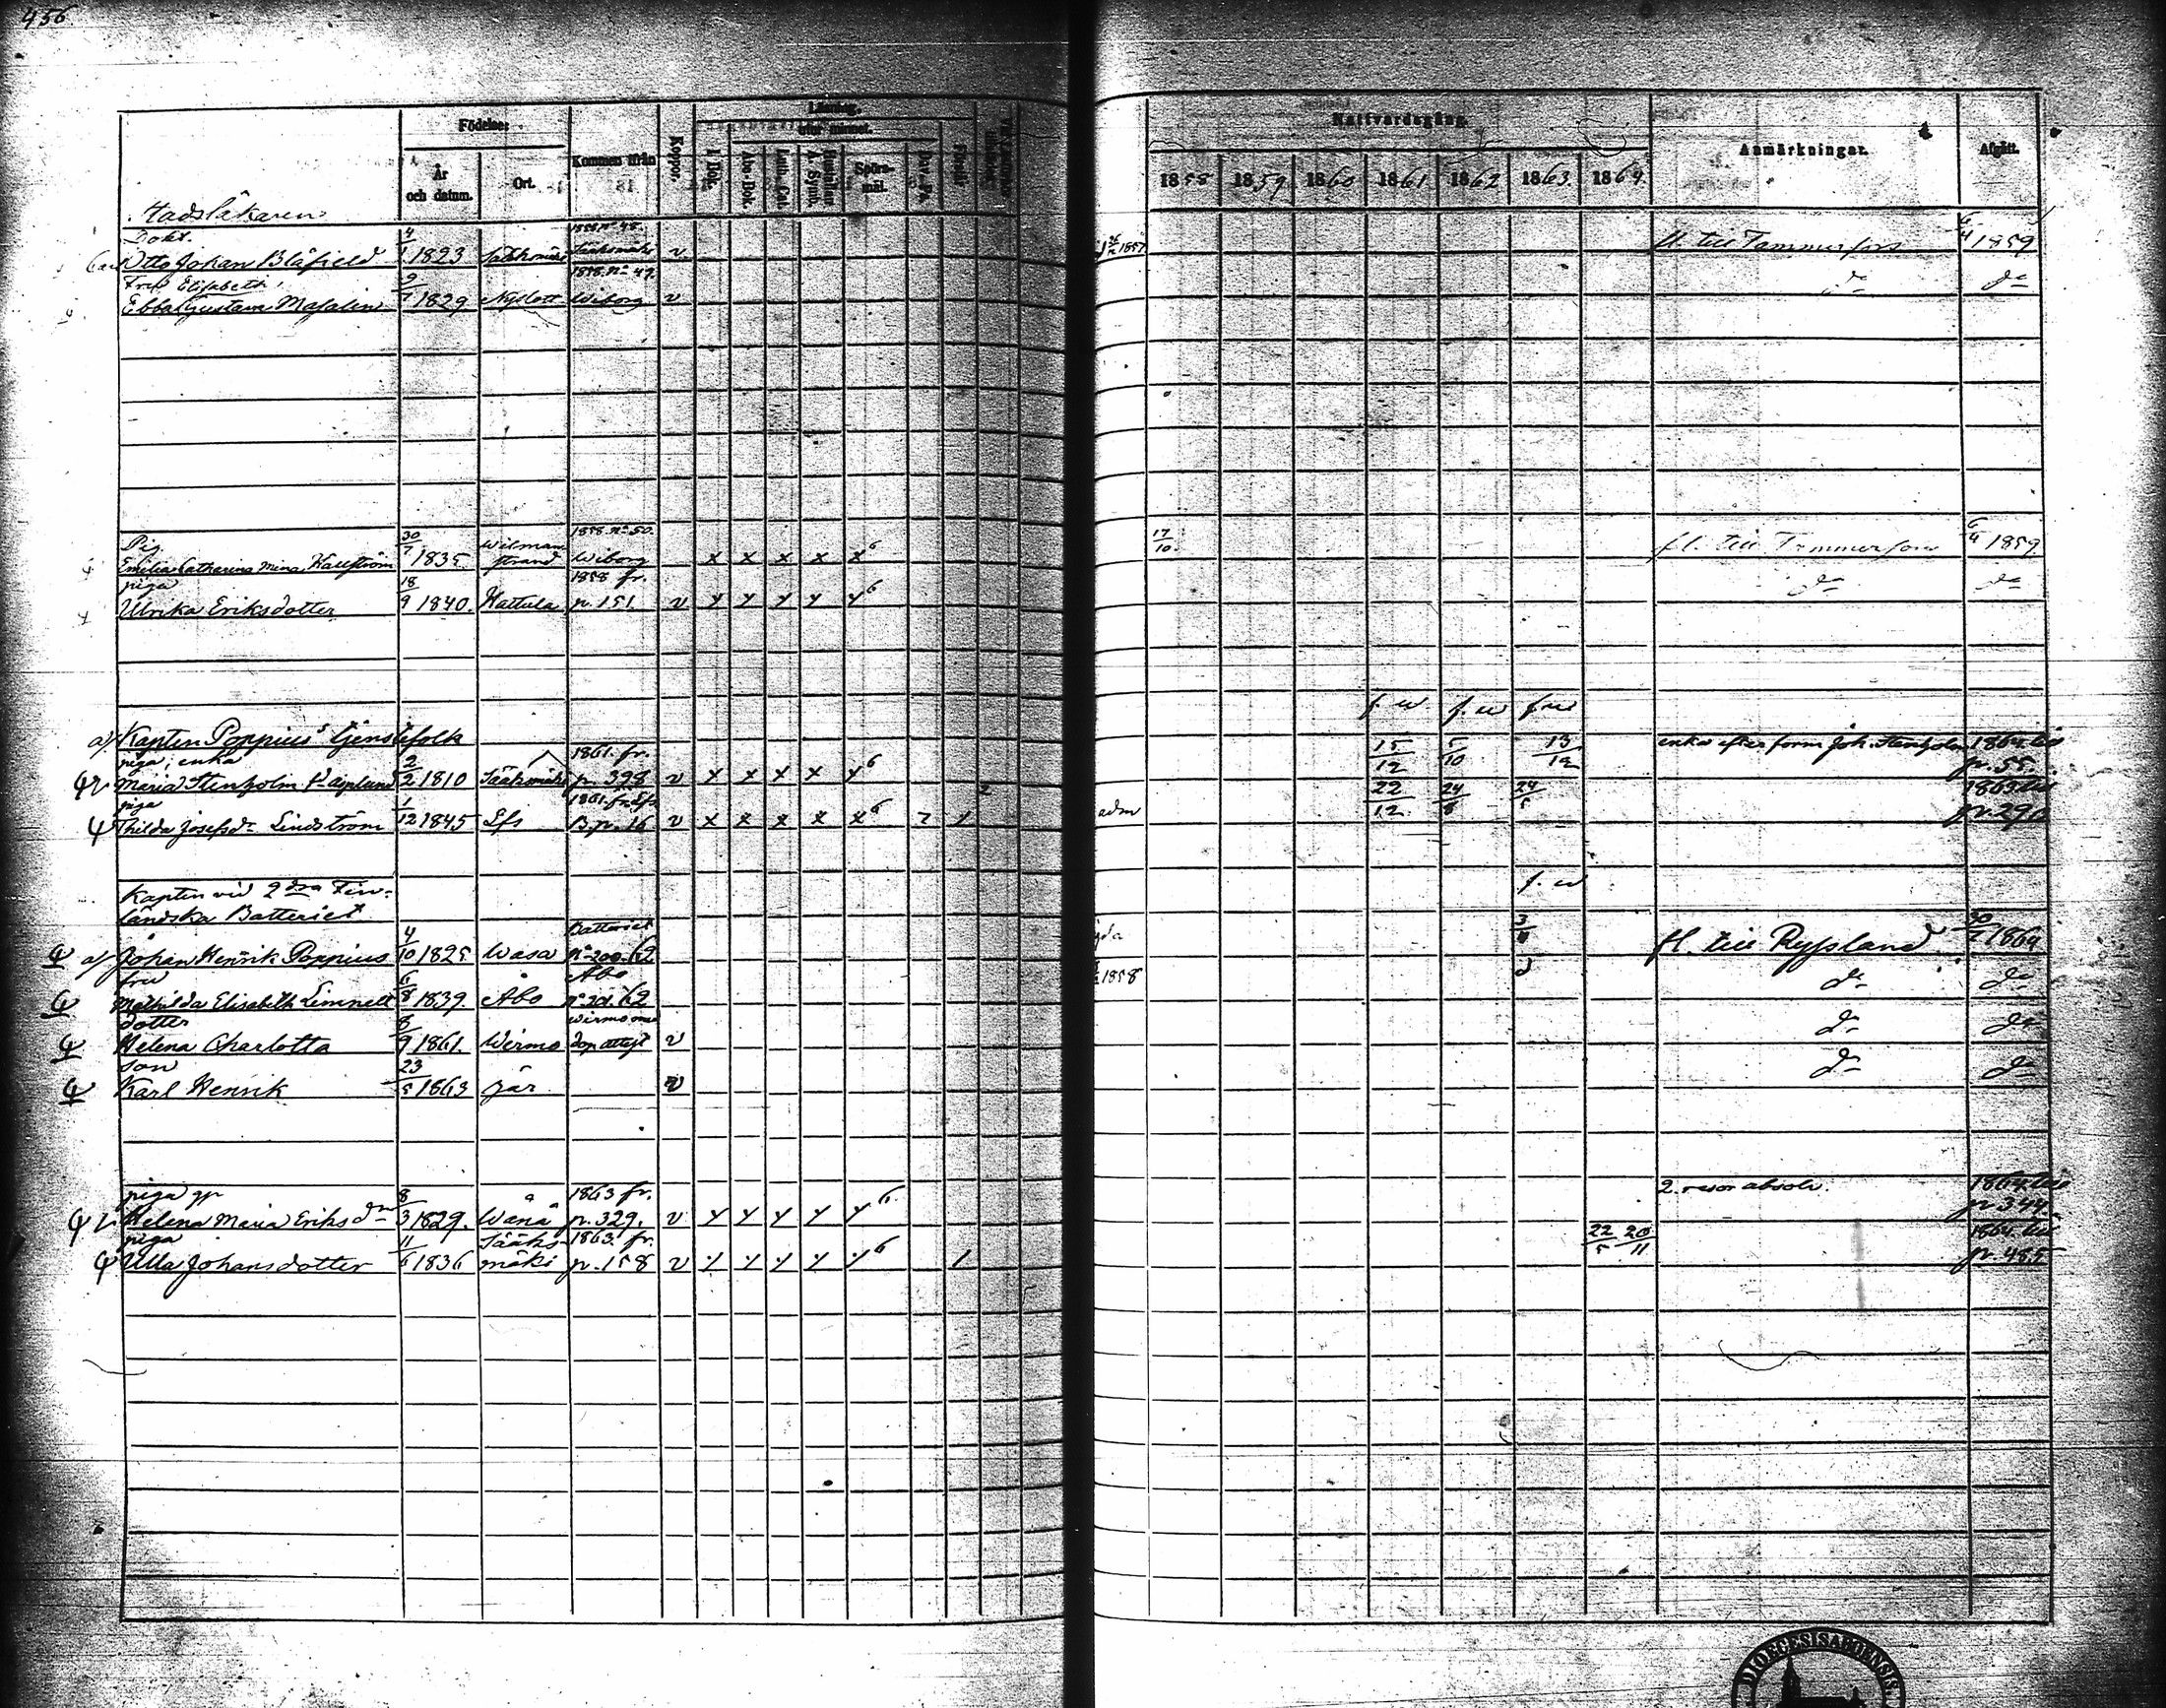 456.
Födelse:
År
och datum.
Ort.
Kommen ifrån
Koppor.
Läsning.
utur minnet.
I. Bok.
Abc-Bok.
Luth. Cat.
Spörs-
mål.
Dav. Ps.
Förstår
Nattvardsgång.
1855 1859 1860 1861 1862 1863 1864
Anmärkningar.
Afgått.
Stadsläkaren
Dokt.
Carl Otto Johan Blåfield 4/1 1823 Sääksmäki v fl. till Tammerfors 6/4 1859
Fru Elisabeth 1858 No 49.
Ebba Gustava Masalin 9/7 1829. Nyslott Wiborg v do do
Pig. 1858. No 50.
Emilia Catharina Mina Kallström 30/7 1835. Wilman strand Wiborg x x x x x6 17/10 fl. till Tammerfors 6/4 1859.
piga 1858 fr.
Ulrika Eriksdotter 18/9 1840. Hattula p. 151. v y y y y y6 do do
a) Kapten Poppius' tjenstefolk f. w f. w f w
piga; enka 1861. fr.
Maria Stenholm 2/2 1810 Sääksmäki p. 398 v x x x x y6 15/12 5/10 13/12 enka efter Joh. Stenholm 1864. till p. 55.
piga 1861. fr. Lfs
Thilda Josefsdr Lindström 1/12 1845 Lfs B. p. 16 v x x x x x6 7 1 adm 22/12 24/8 24/5 1863 till p. 290
Kapten vid 2dra Fin-
ländska Batteriet f. w
a) Johan Henrik Poppius 4/10 1825 Wasa Batteriet No 200. 62 fl. till Ryssland 30/7 1864
fru Åbo
Mathilda Elisabeth Limnell 6/8 1839. Åbo 62 1858 do do
dotter
Helena Charlotta 8/9 1861. Wirmo dop attest v do do
son
Karl Henrik 23/5 1863 här v do do
piga 1863 fr.
Helena Maria Eriksdr 8/3 1829. Wånå p. 329. v y y y y y6 2. resor absolv. 1864. till p. 344.
piga 1863. fr.
Ulla Johansdotter 11/6 1836 Sääks-mäki p. 158 v y y y y y6 1 22/5 20/11 1864. till p. 485
DIOECESIS ABOENSIS